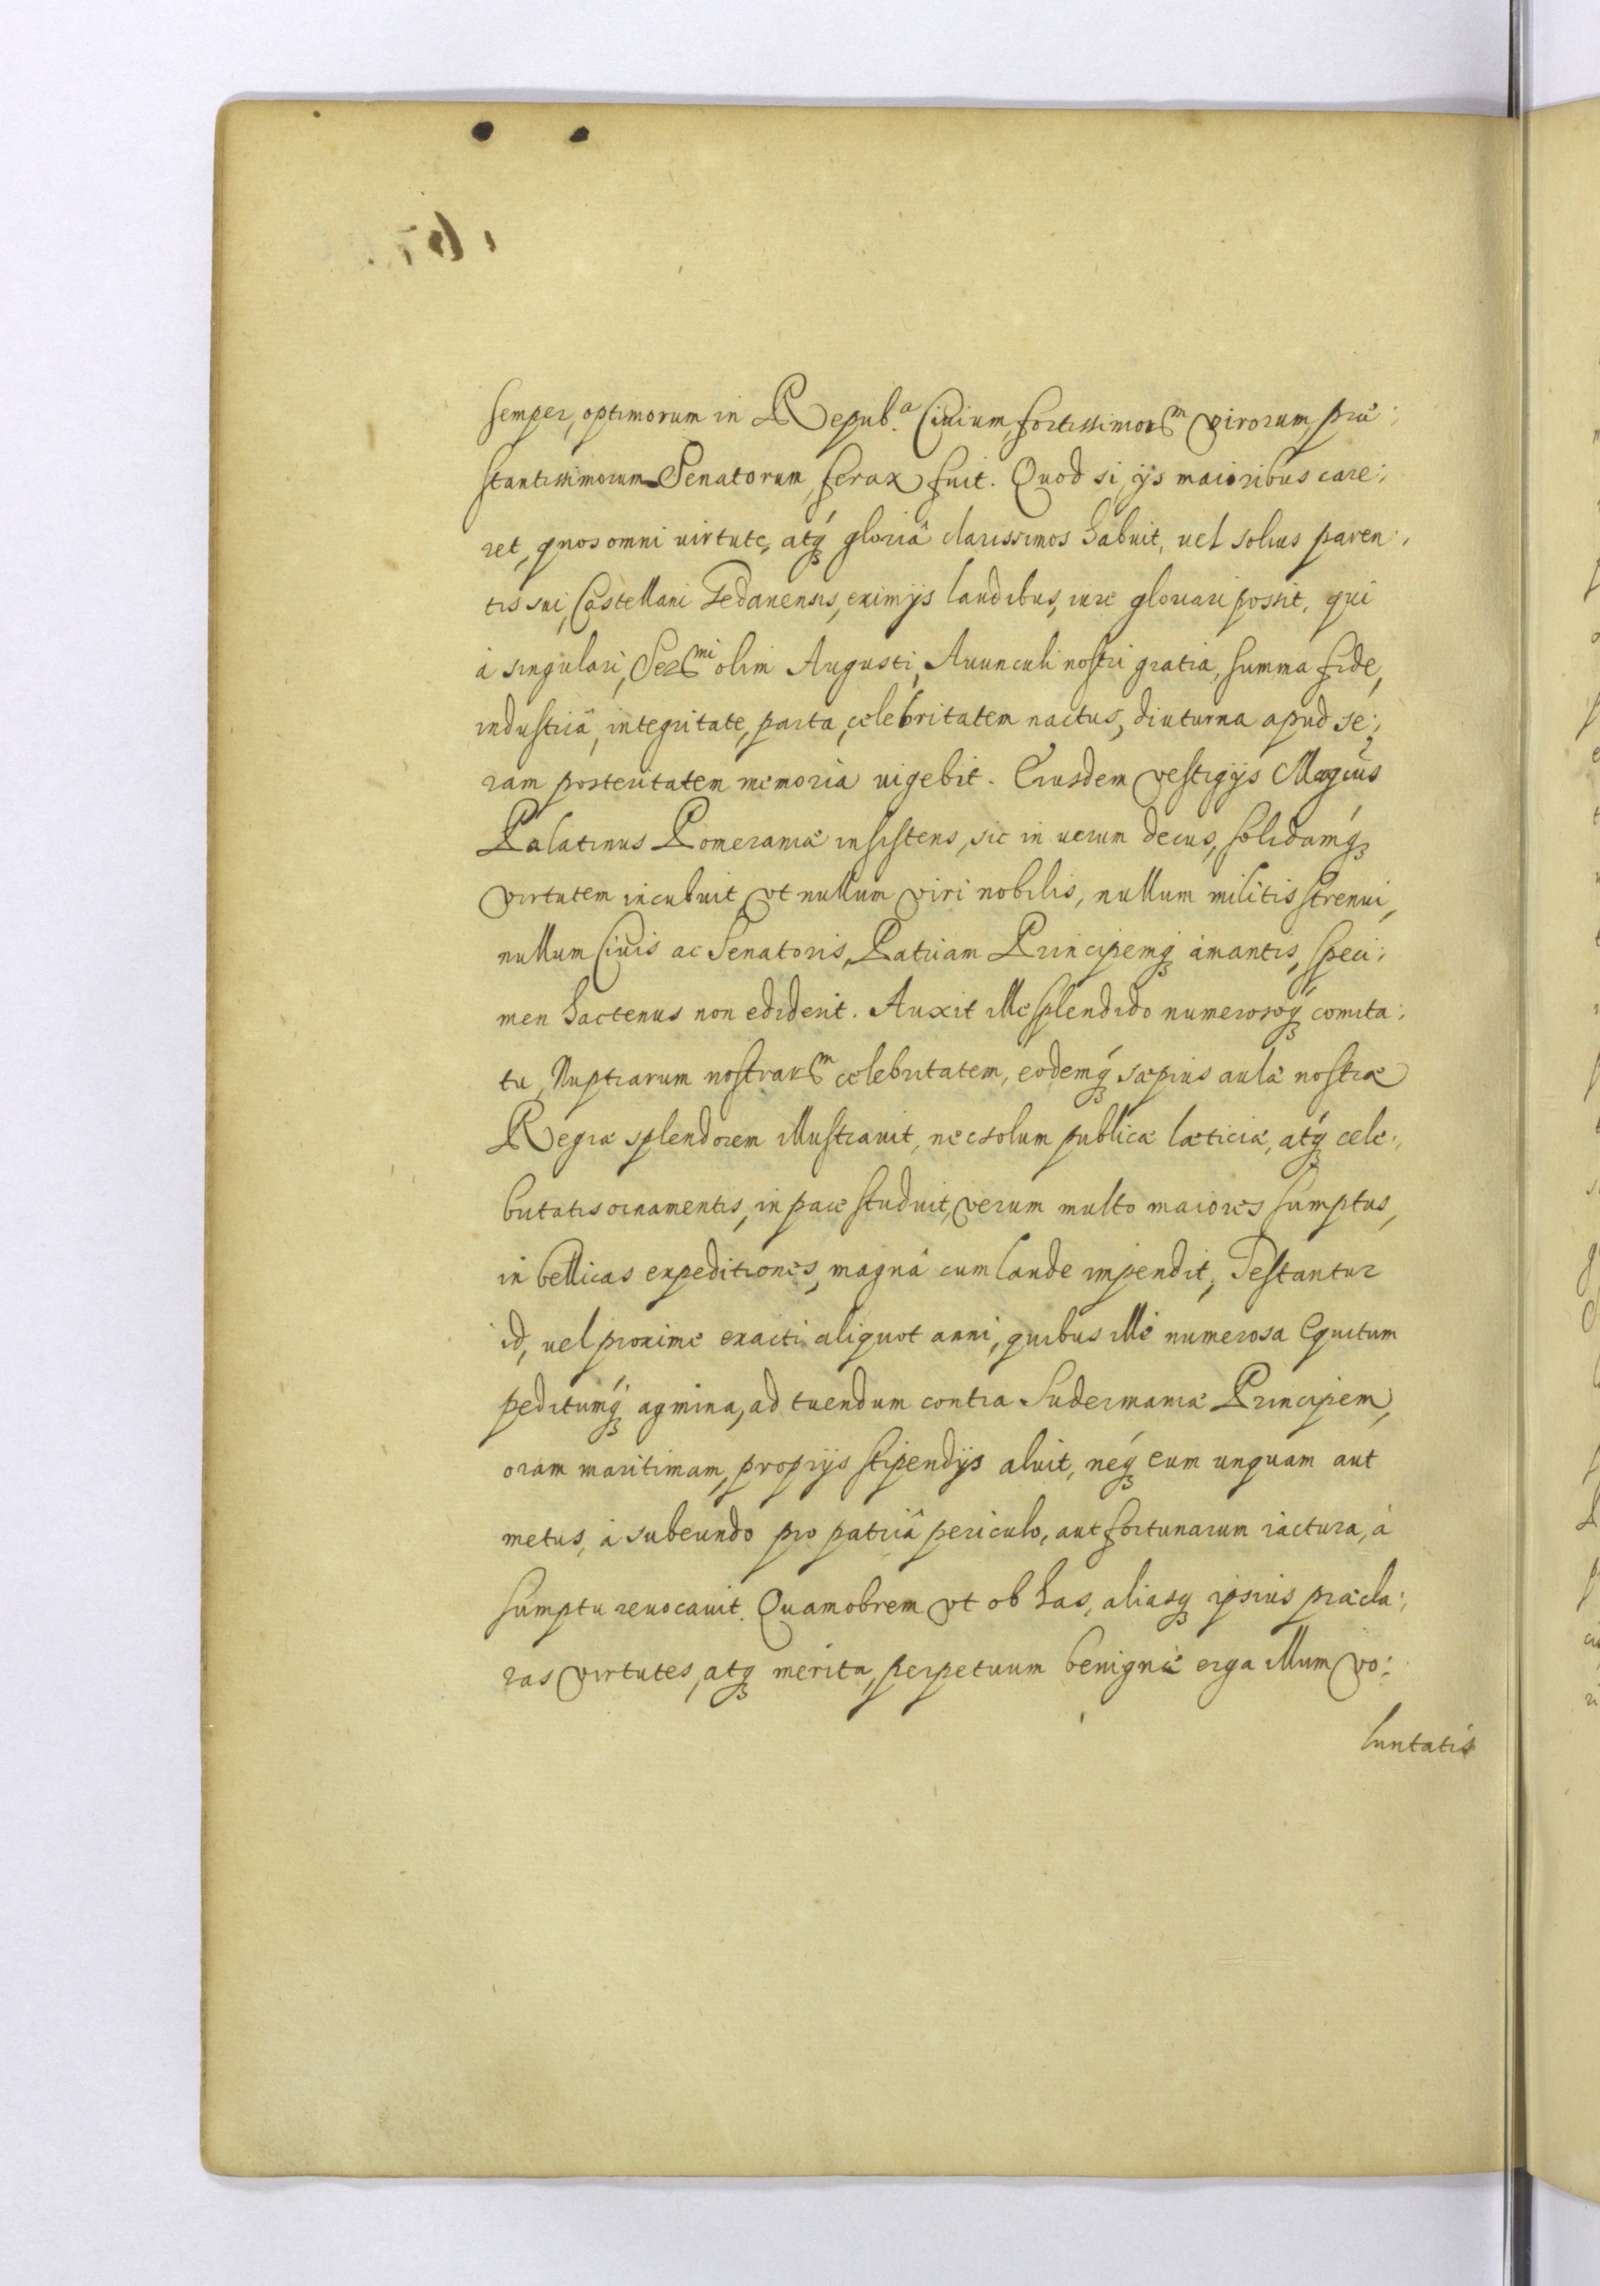 semper, optimorum in Repub.ᵃ Ciuium, fortissimorᵐ virorum, præ:
stantissimorum Senatorum, ferax fuit. Quod si, ijs maioribus care:
ret, quos omni uirtute, atq́ʒ gloriâ clarissimos habuit, uel solius paren:
tis sui, Castellani Gedanensis, eximijs laudibus, iure gloriari possit, qui
à singulari, Serᵐⁱ olim Augusti, Auunculi nostri gratia, summa fide,
industriâ, integritate, parta, celebritatem nactus, diuturna apud se:
ram posteritatem memoria uigebit. Eiusdem vestigijs Magcus
Palatinus Pomeraniæ insistens, sic in uerum decus, solidamq́ʒ
virtutem incubuit, vt nullum viri nobilis, nullum militis strenui,
nullum Ciuis ac Senatoris, Patriam Principemq́ʒ amantis, speci:
men hactenus non ediderit. Auxit ille splendido numerosoq́ʒ comita:
tu, Nuptiarum nostrarᵐ celebritatem, eodemq́ʒ sæpius aulæ nostræ
Regiæ splendorem illustrauit, nec solum publicæ læticiæ, atq́ʒ cele:
britatis ornamentis, in pace studuit, verum multo maiores sumptus,
in bellicas expeditiones, magnâ cum laude impendit, Testantur
id, uel proxime exacti aliquot anni, quibus ille numerosa Equitum
peditumq́ʒ agmina, ad tuendum contra Sudermaniæ Principem,
oram maritimam, proprijs stipendijs aluit, neq́ʒ eum unquam aut
metus, à subeundo pro patriâ periculo, aut fortunarum iactura, à
sumptu reuocauit. Quamobrem vt ob has, aliasqʒ ipsius præcla:
ras virtutes, atqʒ merita, perpetuum benignæ erga illum vo:
luntatis